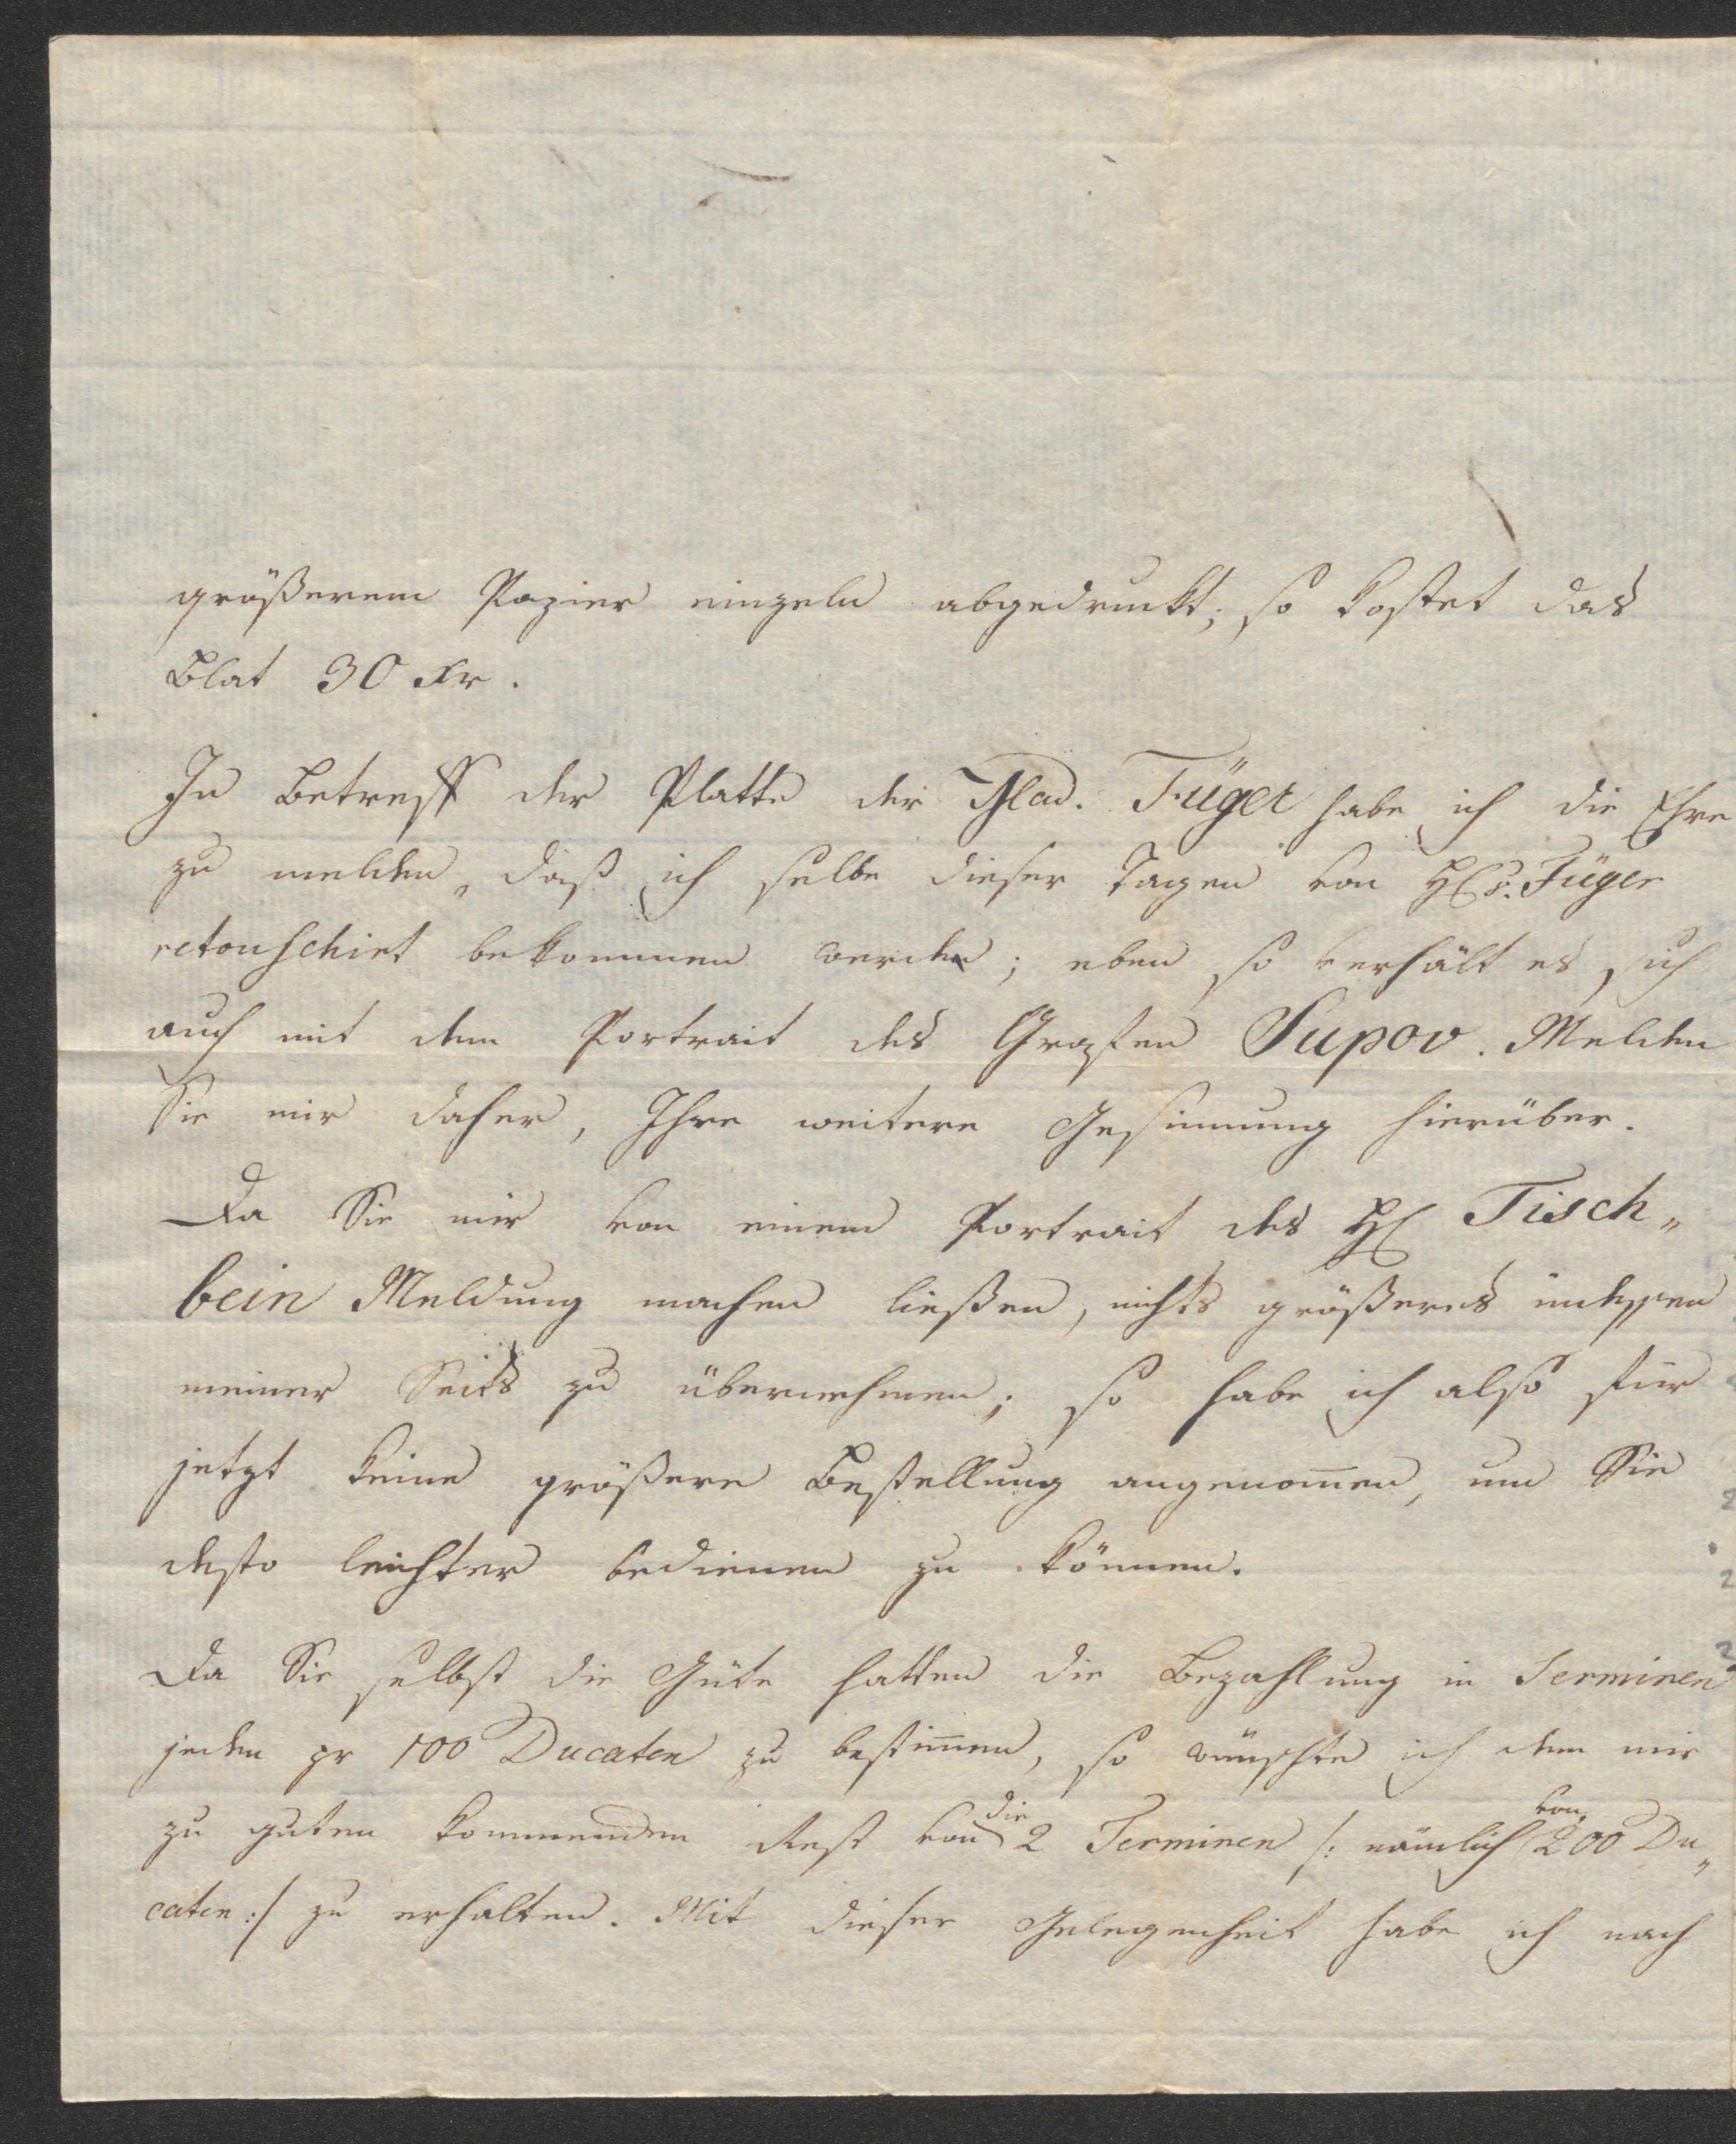 größerem Papier einzeln abgedruckt; so kostet das
Blat 30 Xr.
In Betreff der Platte der Mad. Füger habe ich die Ehre
zu melden, daß ich selbe dieser Tagen von H: Füger
retouschirt bekommen werde; eben so verhält es sich
auch mit dem Portrait des Grafen Supov. Melden
Sie mir daher, Ihre weitere Gesinnung hierüber.
Da Sie mir von einem Portrait des H: Tisch„
bein Meldung machen ließen, nichts größeres indessen
meiner Seits zu übernehmen; so habe ich also für
jetzt keine größere Bestellung angenom̄en, um Sie
desto leichter bedienen zu können.
Da Sie selbst die Güte hatten die Bezahlung in Terminen
jeden pr 100 Ducaten zu bestim̄en, so wünschte ich dem mir
zu guten kommenden Rest von die 2 Terminen /: nämlich von 200 Du„
caten :/ zu erhalten. Mit dieser Gelegenheit habe ich nach